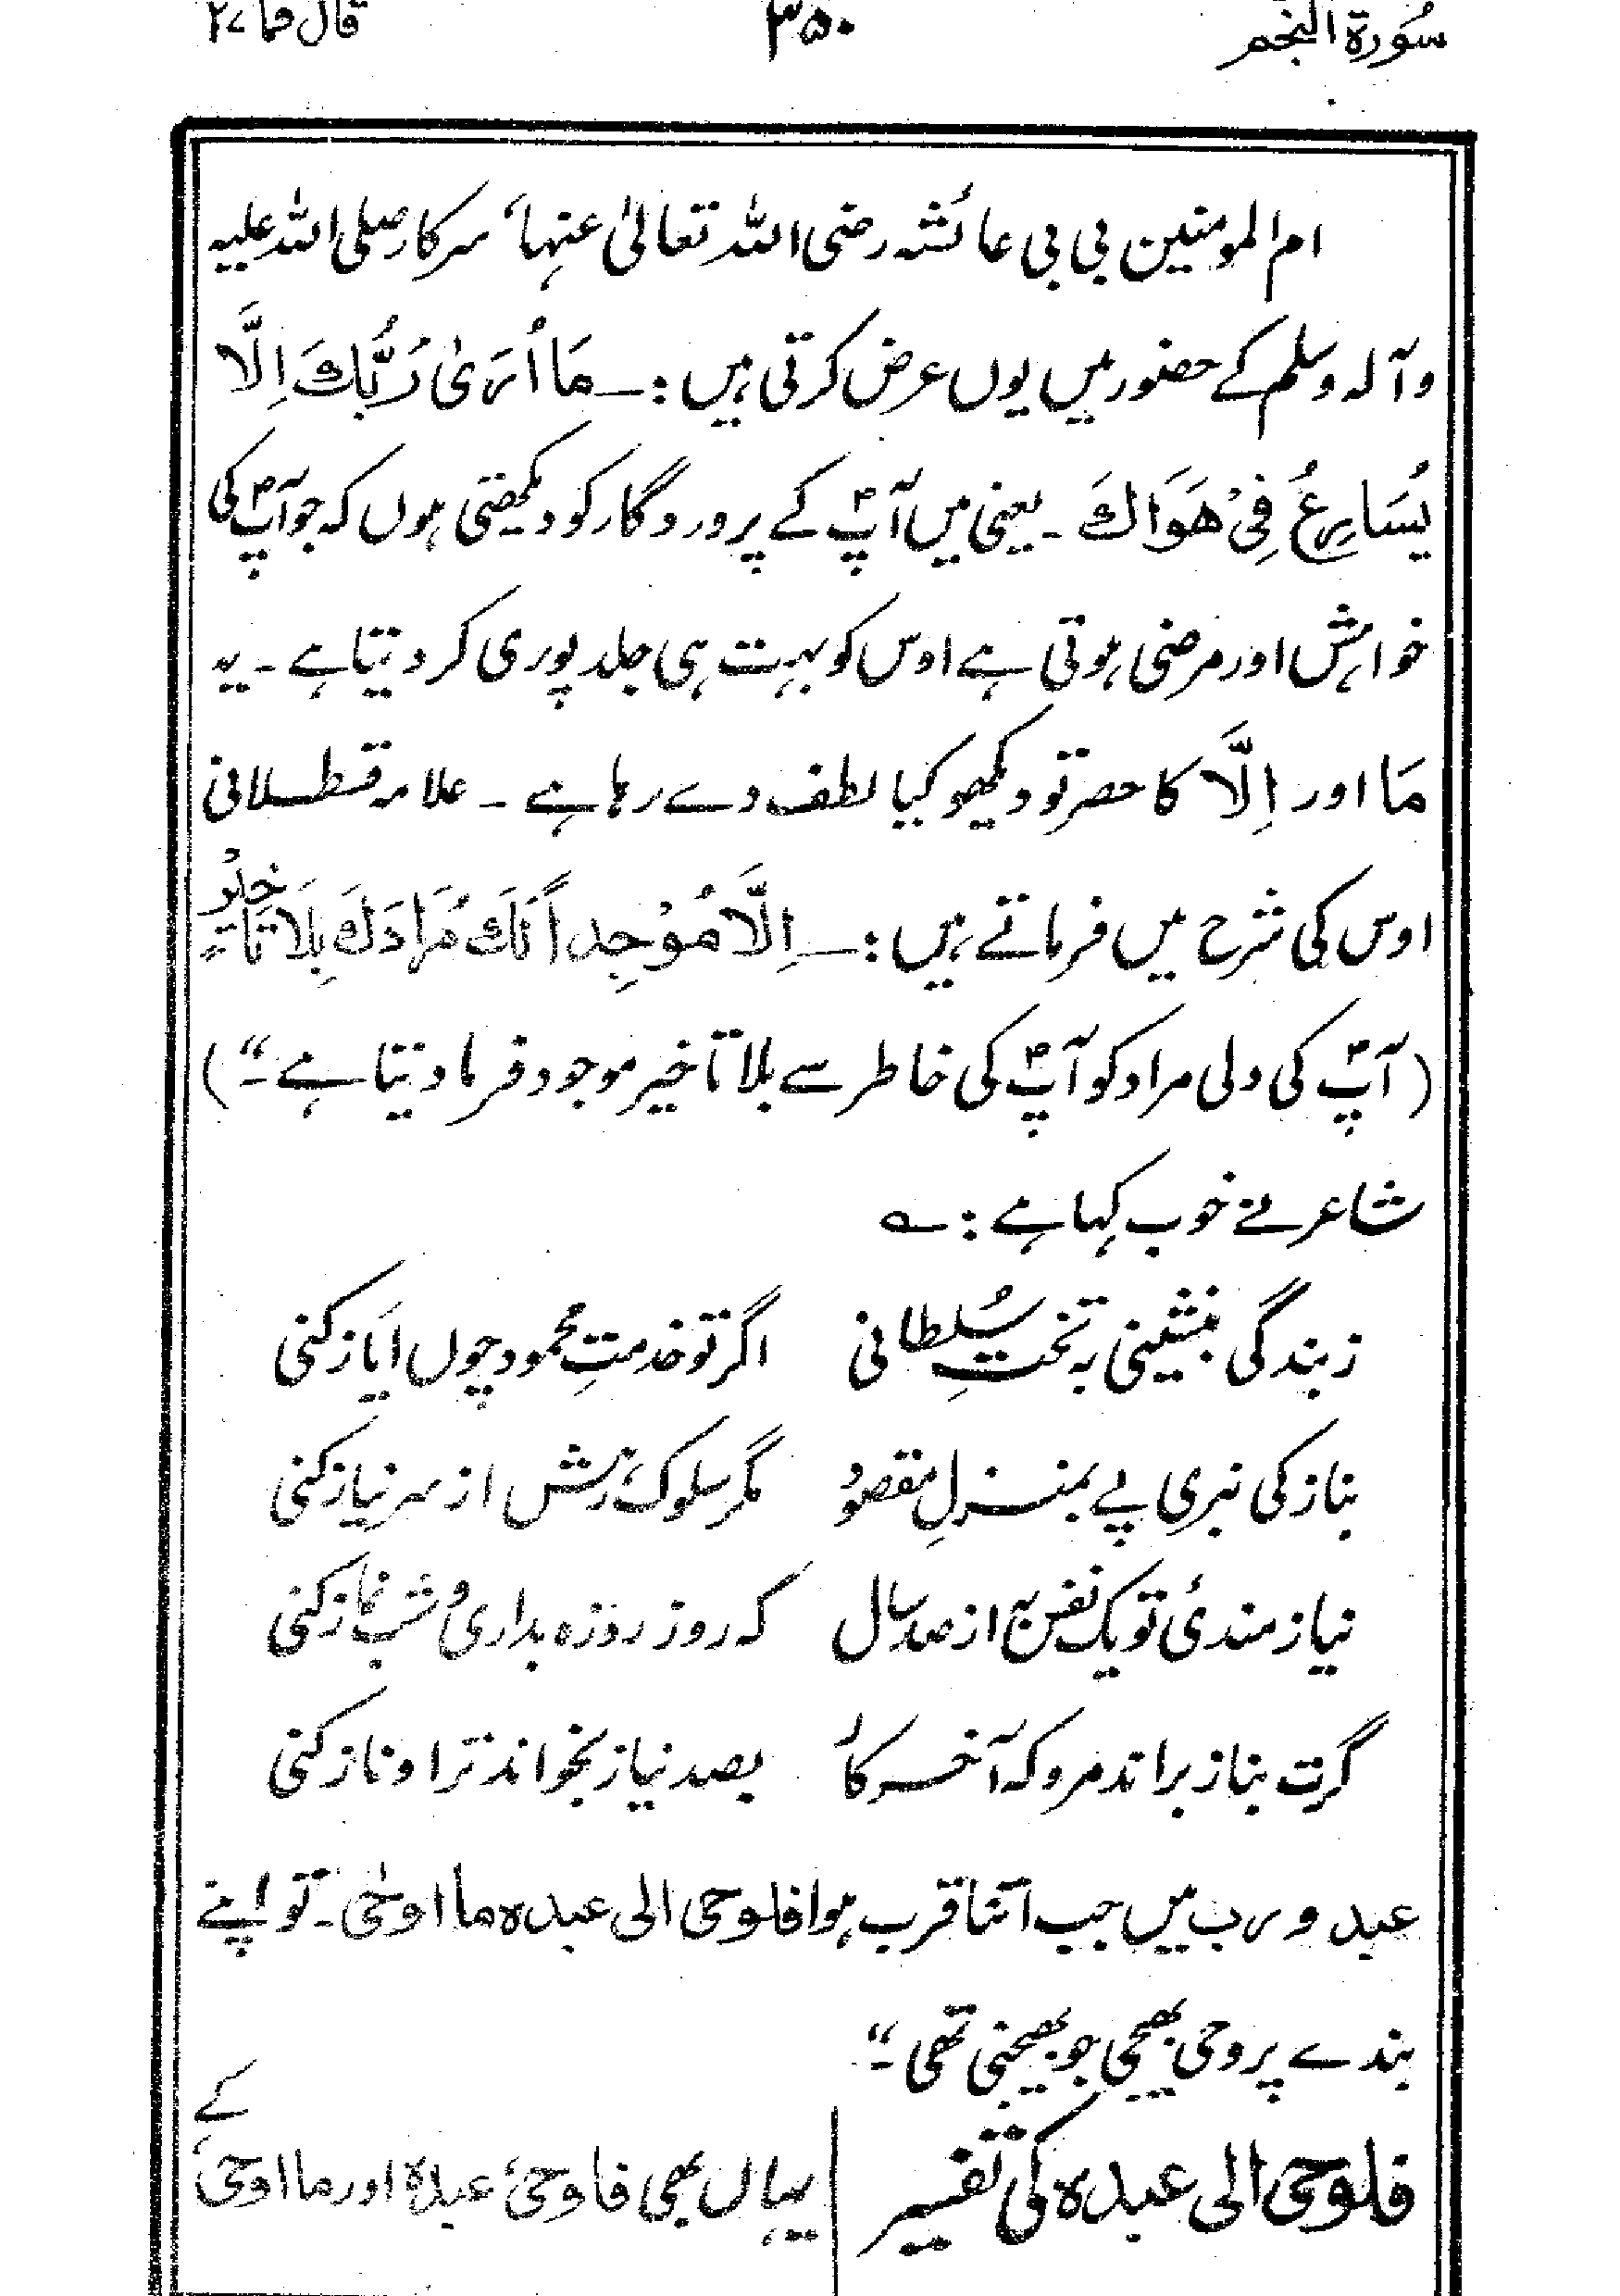 سُورة النجم ۳۵۰ قال فما ۲۷
ام المومنین بی بی عائشہ رضی اللہ تعالیٰ عنہا، سرکار صلی اللہ علیہ
وآلہ وسلم کے حضور میں یوں عرض کرتی ہیں :۔ مَا اُرَىٰ رَبُّكَ اِلَّا
يُسَارِعُ فِىْ هَوَاكَ ۔ یعنی میں آپؐ کے پروردگار کو دیکھتی ہوں کہ جو آپؐ کی
خواہش اور مرضی ہوتی ہے اوس کو بہت ہی جلد پوری کر دیتا ہے ۔ یہ
مَا اور اِلَّا کا حصر تو دیکھو کیا لطف دے رہا ہے ۔ علامہ قسطلانی
اوس کی شرح میں فرماتے ہیں :۔ اِلَّا مُوْجِداً لَكَ مُرَادَكَ بِلَا تَاخِيْرٍ
(آپؐ کی دلی مراد کو آپؐ کی خاطر سے بلا تاخیر موجود فرما دیتا ہے ۔“)
شاعر نے خوب کہا ہے :۔
زبندگی بنشینی بہ تختِ سُلطانی اگر تو خدمتِ محمود چوں ایَاز کنی
بناز کی نبری پے بمنزلِ مقصود مگر سلوک رہش از سرِ نیاز کنی
نیاز مندئ تو یک نفس بہ از صد سال کہ روز روزہ بداری و شب نماز کنی
گرت بناز براند مرو کہ آخر کار بصد نیاز بخواند ترا و ناز کنی
عبد و رب میں جب اتنا قرب ہوا فاوحی الی عبدہ ما اوحٰی ۔ تو اپنے
بندے پر وحی بھیجی جو بھیجنی تھی ۔“
فاوحی الی عبدہ کی تفسیر یہاں بھی فاوحیٰ، عبدہٗ اور ما اوحی کے